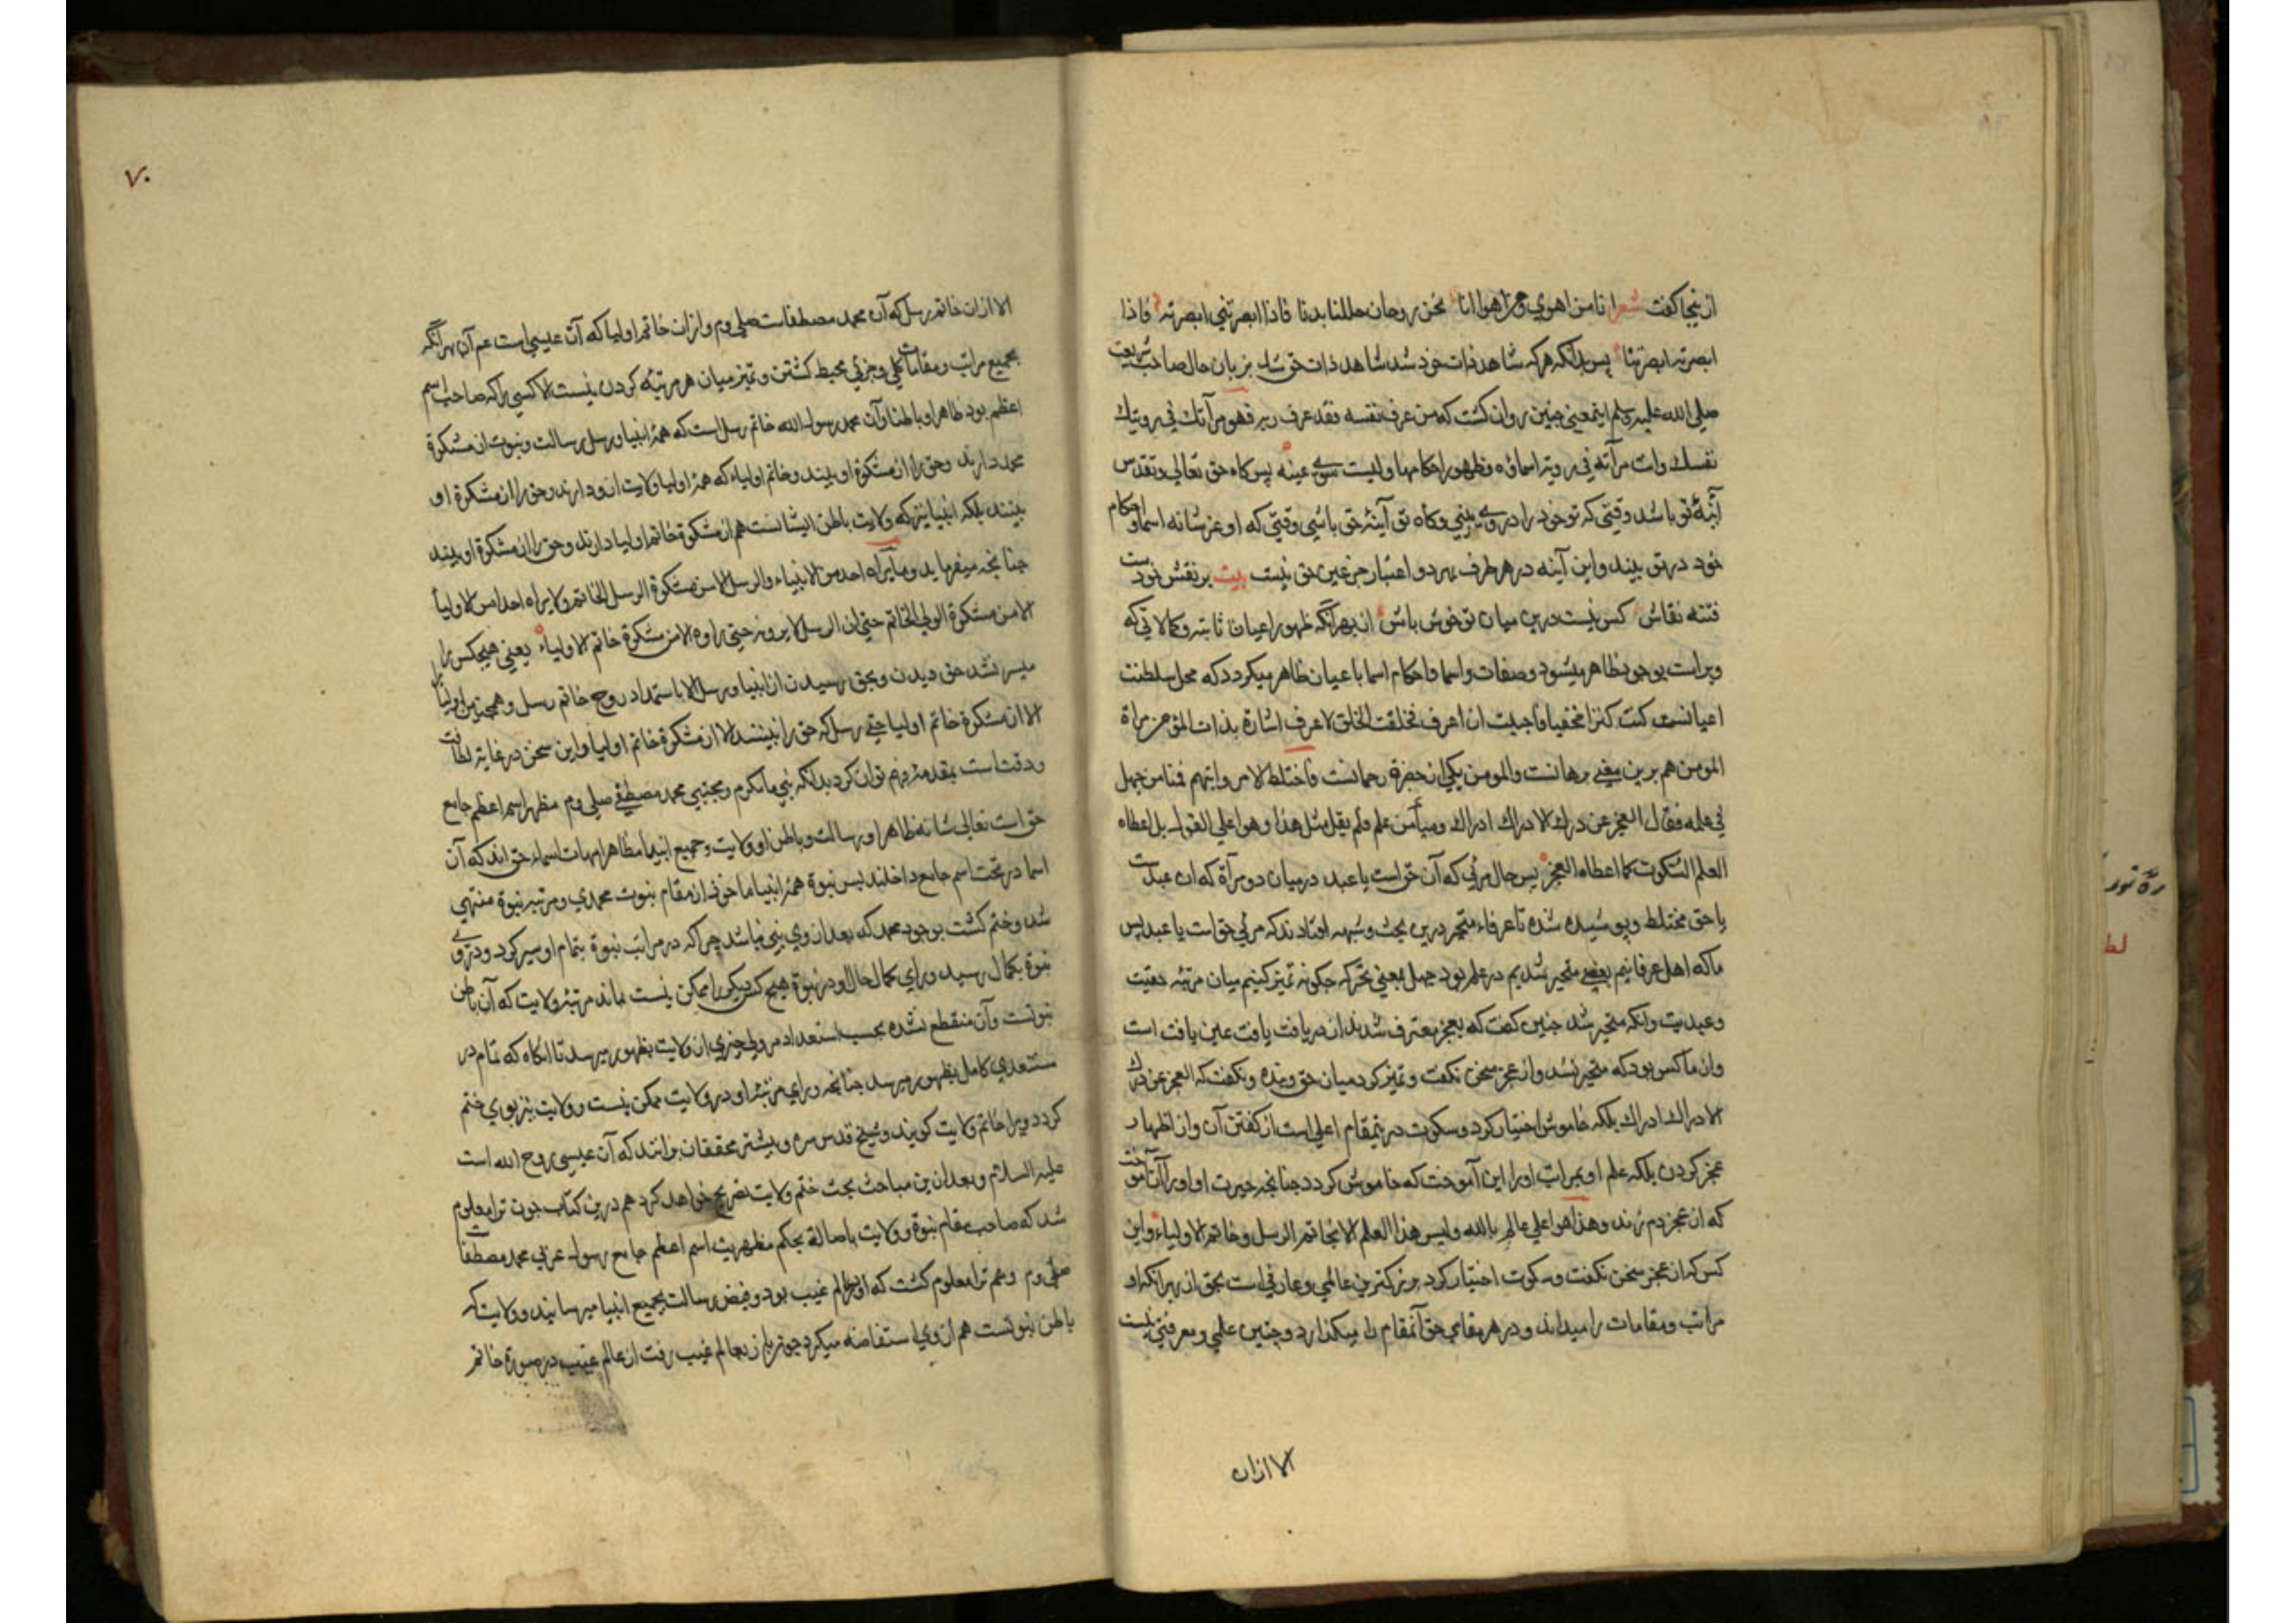 ازینجا کفت شعر انا من اهوی و من اهوا انا نحن روحان حللنا بدنا فاذا ابصرتنی ابصرته فاذا
ابصرته ابصرتنا پس بدانکه هرکه شاهد ذات خود شد شاهد ذات حق شد بزبان حال صاحب شریعت
صلی الله علیه وسلم اینمعنی چنین روان کشت که من عرف نفسه فقد عرف ربه فهو مرآتك فی رویتك
نفسك وانت مرآته فی رویته اسماؤه وظهور احکامها ولیست سوی عینه پس کاه حق تعالی وتقدس
آینۀ تو باشد وقتی که تو خود را در وی بینی وکاه تو آینۀ حق باشی وقتی که او عز شانه اسما واحکام
خود در تو بیند واین آینه در هر طرف بهر دو اعتبار جز عین حق نیست بیت بر نقش خودست
فتنه نقاش کس نیست درین میان تو خوش باش از بهر آنکه ظهور اعیان ثابته وکمالاتی که
ویراست بوجود ظاهر میشود وصفات واسما واحکام اسما باعیان ظاهر میکردد که محل سلطنت
اعیانست کنت کنزا مخفیا فاحببت ان اعرف فخلقت الخلق لاعرف اشارة بذات المؤمن مراة
المومن هم برین معنی برهانست والمومن یکی از حضرة رحمانست فاختلط الامر وانبهم فمنا من جهل
فی علمه فقال العجز عن درك الادراك ادراك ومنا من علم فلم یقل مثل هذا وهو اعلی القول بل اعطاه
العلم السکوت کما اعطاه العجز پس حال مرئی که آن حق است یا عبد در میان دو مرآة که ان عبدست
یا حق مختلط وپوشیده شده تا عرفاء متحیر درین بحث وشبهه افتادند که مرئی حق است یا عبد پس
ما که اهل عرفانیم بعضی متحیر شدیم در علم بود جهل بمعنی تحیر که چکونه تمیز کنیم میان مرتبه حقیت
وعبدیت وآنکه متحیر شد چنین کفت که بعجز معترف شدند از دریافت یافت عین یافت است
واز ما کس بود که متحیر نشد واز عجز سخن نکفت وتمیز کرد میان حق وبنده ونکفت که العجز عن درك
الادراك ادراك بلکه خاموش اختیار کرد وسکوت درینمقام اعلی است از کفتن آن واز اظهار
عجز کردن بلکه علم او بمراتب اورا این آموخت که خاموش کردد چنانچه حیرت او اورا آن آموخت
که از عجز دم زند وهذا هو اعلی عالم بالله ولیس هذا العلم الا لخاتم الرسل وخاتم الاولیاء واین
کس که از عجز سخن نکفت وسکوت اختیار کرد بزرکترین عالمی وعارفی است بحق از بهر آنکه او
مراتب ومقامات را میداند ودر هر مقامی حق آنمقام را میکذارد وچنین علمی ومعرفتی نیست
الا ازان
۷۰
الا ازان خاتم رسل که آن محمد مصطفاست صلی وم وازان خاتم اولیا که آن عیسی است عم آن بهر آنکه
بجمیع مراتب ومقامات کلی وجزئی محیط کشتن وتمیز میان هر مرتبه کردن نیست الا کسی را که صاحب اسم
اعظم بود ظاهرا وباطنا وآن محمد رسول الله خاتم رسل است که همۀ انبیا ورسل رسالت ونبوت از مشکوة
محمد دارند وحق را از مشکوة او بینند وخاتم اولیاء که همۀ اولیا ولایت ازو دارند وحق را از مشکوة او
بینند بلکه انبیا نیز که ولایت باطن ایشانست هم از مشکوة خاتم اولیا دارند وحق را از مشکوة او بینند
چنانچه میفرماید وما یراه احد من الانبیاء والرسل الا من مشکوة الرسل الخاتم ولا یراه احد من الاولیا
الا من مشکوة الولی الخاتم حتی ان الرسل لا یرونه متی راوه الا من مشکوة خاتم الاولیاء یعنی هیچکس را
میسر نشد حق دیدن وبحق رسیدن از انبیا ورسل الا باستمداد روح خاتم رسل وهمچنین اولیا را
الا از مشکوة خاتم اولیا حتی رسل که حق را نبینند الا از مشکوة خاتم اولیا واین سخن در غایة لطافت
ودقت است بمقدمۀ فهم توان کرد بدانکه نبی مأ مکرم ومجتبی محمد مصطفی صلی وم مظهر اسم اعظم جامع
حق است تعالی شانه ظاهر او رسالت وباطن او ولایت وجمیع انبیا مظاهر امهات اسماء حق اند که آن
اسما در تحت اسم جامع داخلند پس نبوة همۀ انبیا ماخوذ از مقام نبوت محمدی ومرتبۀ نبوة منتهی
شد وختم کشت بوجود محمد که بعد از وی نبی نباشد چرا که در مراتب نبوة بتمام او سیر کرد ودر وی
نبوة بکمال رسید وورای کمال حال او در نبوة هیچ کس دیکر را ممکن نیست بماند مرتبۀ ولایت که آن باطن
نبوتست وآن منقطع نشده بحسب استعداد هر ولی چیزی از ولایت بظهور میرسد تا آنکاه که تمام در
مستعدی کامل بظهور میرسد چنانچه ورای مرتبۀ او در ولایت ممکن نیست وولایت نیز بوی ختم
کردد ویرا خاتم ولایت کویند وشیخ قدس سره وبیشتر محققان برانند که آن عیسی روح الله است
علیه السلام وبعد ازین مباحث بحث ختم ولایت تصریح خواهد کرد هم درین کتاب چون ترا معلوم
شد که صاحب مقام نبوة وولایت باصالة بحکم مظهریت اسم اعظم جامع رسول عربی محمد مصطفاست
صلی وم وهم ترا معلوم کشت که او در عالم غیب بود وفیض رسالت بجمیع انبیا میرسانید وولایت که
باطن نبوتست هم از وی استفاضه میکرد چون باز بعالم غیب رفت از عالم غیب در صورة خاتم